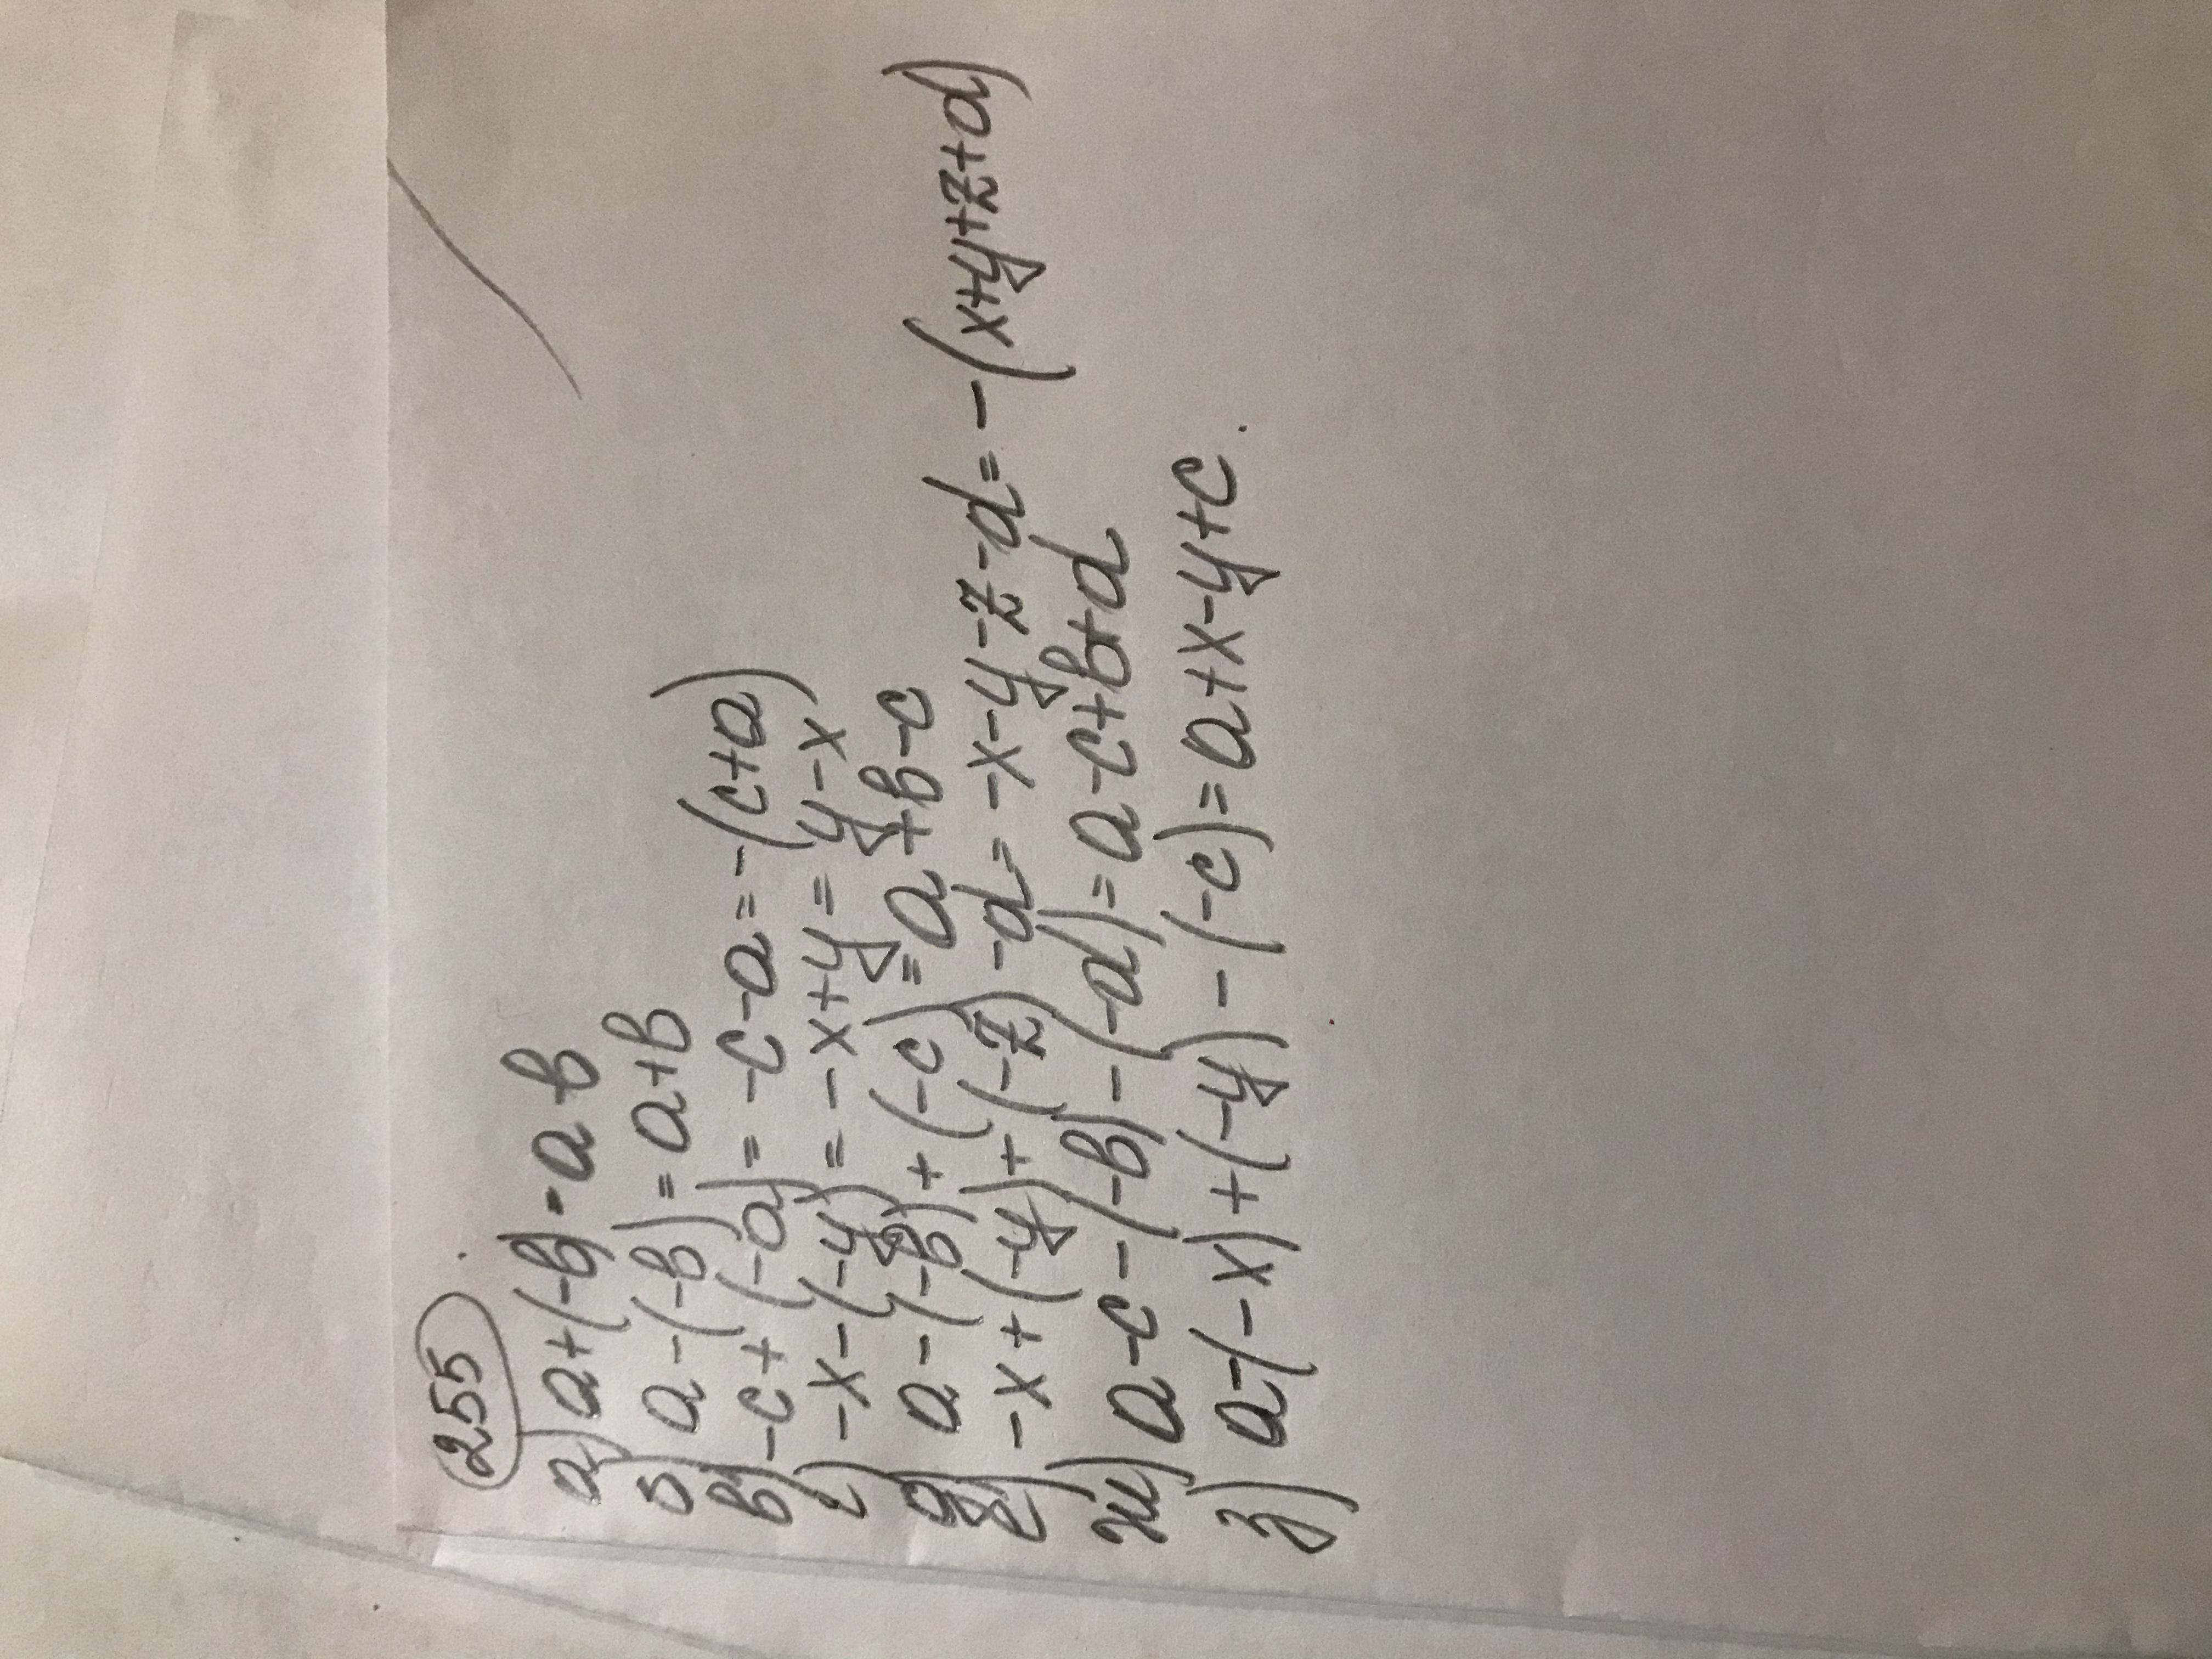 255
а) a+(-b)=a-b
б) a-(-b)=a+b
в) -c+(-a)=-c-a=-(c+a)
г) -x-(-y)=-x+y=y-x
д) a-(-b)+(-c)=a+b-c
е) -x+(-y)+(-z)-d=-x-y-z-d=-(x+y+z+d)
ж) a-c-(-b)-(-d)=a-c+b+d
з) a-(-x)+(-y)-(-c)=a+x-y+c.